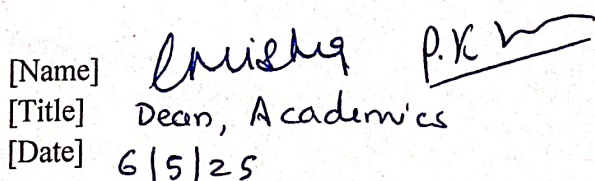 [Name] P.K
[Title] Dean, Academics
[Date] 6/5/25